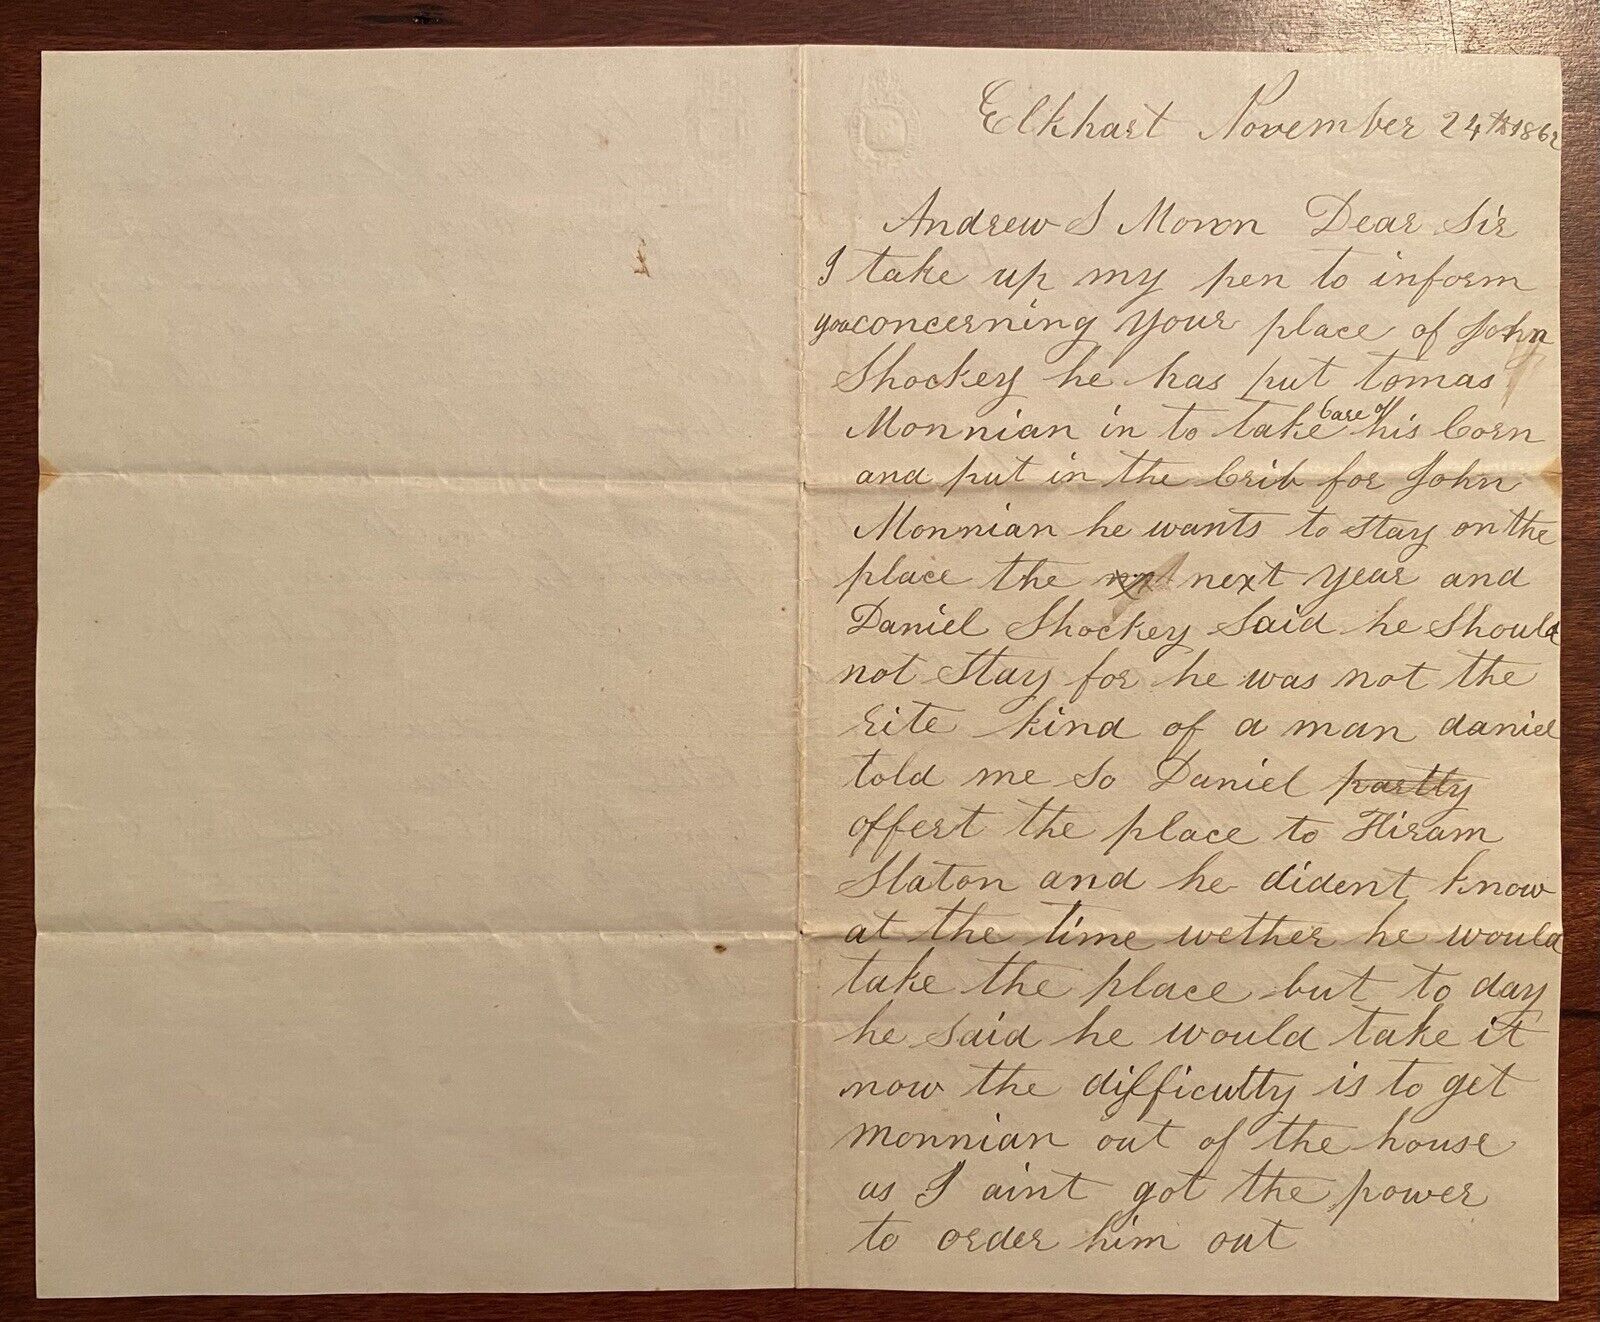 Elkhart November 24th 1862
Andrew S Moron Dear Sir
I take up my pen to inform
you concerning Your place of John
Shockey he has put tomas
Monnian in to take Care of his Corn
and put in the Crib for John
Monnian he wants to Stay on the
place the next Year and
Daniel Shockey Said he Should
not Stay for he was not the
rite kind of a man daniel
told me So Daniel partly
offert the place to Hiram
Slaton and he dident know
at the time wether he would
take the place but to day
he Said he would take it
now the difficulty is to get
monnian out of the house
as I aint got the power
to order him out